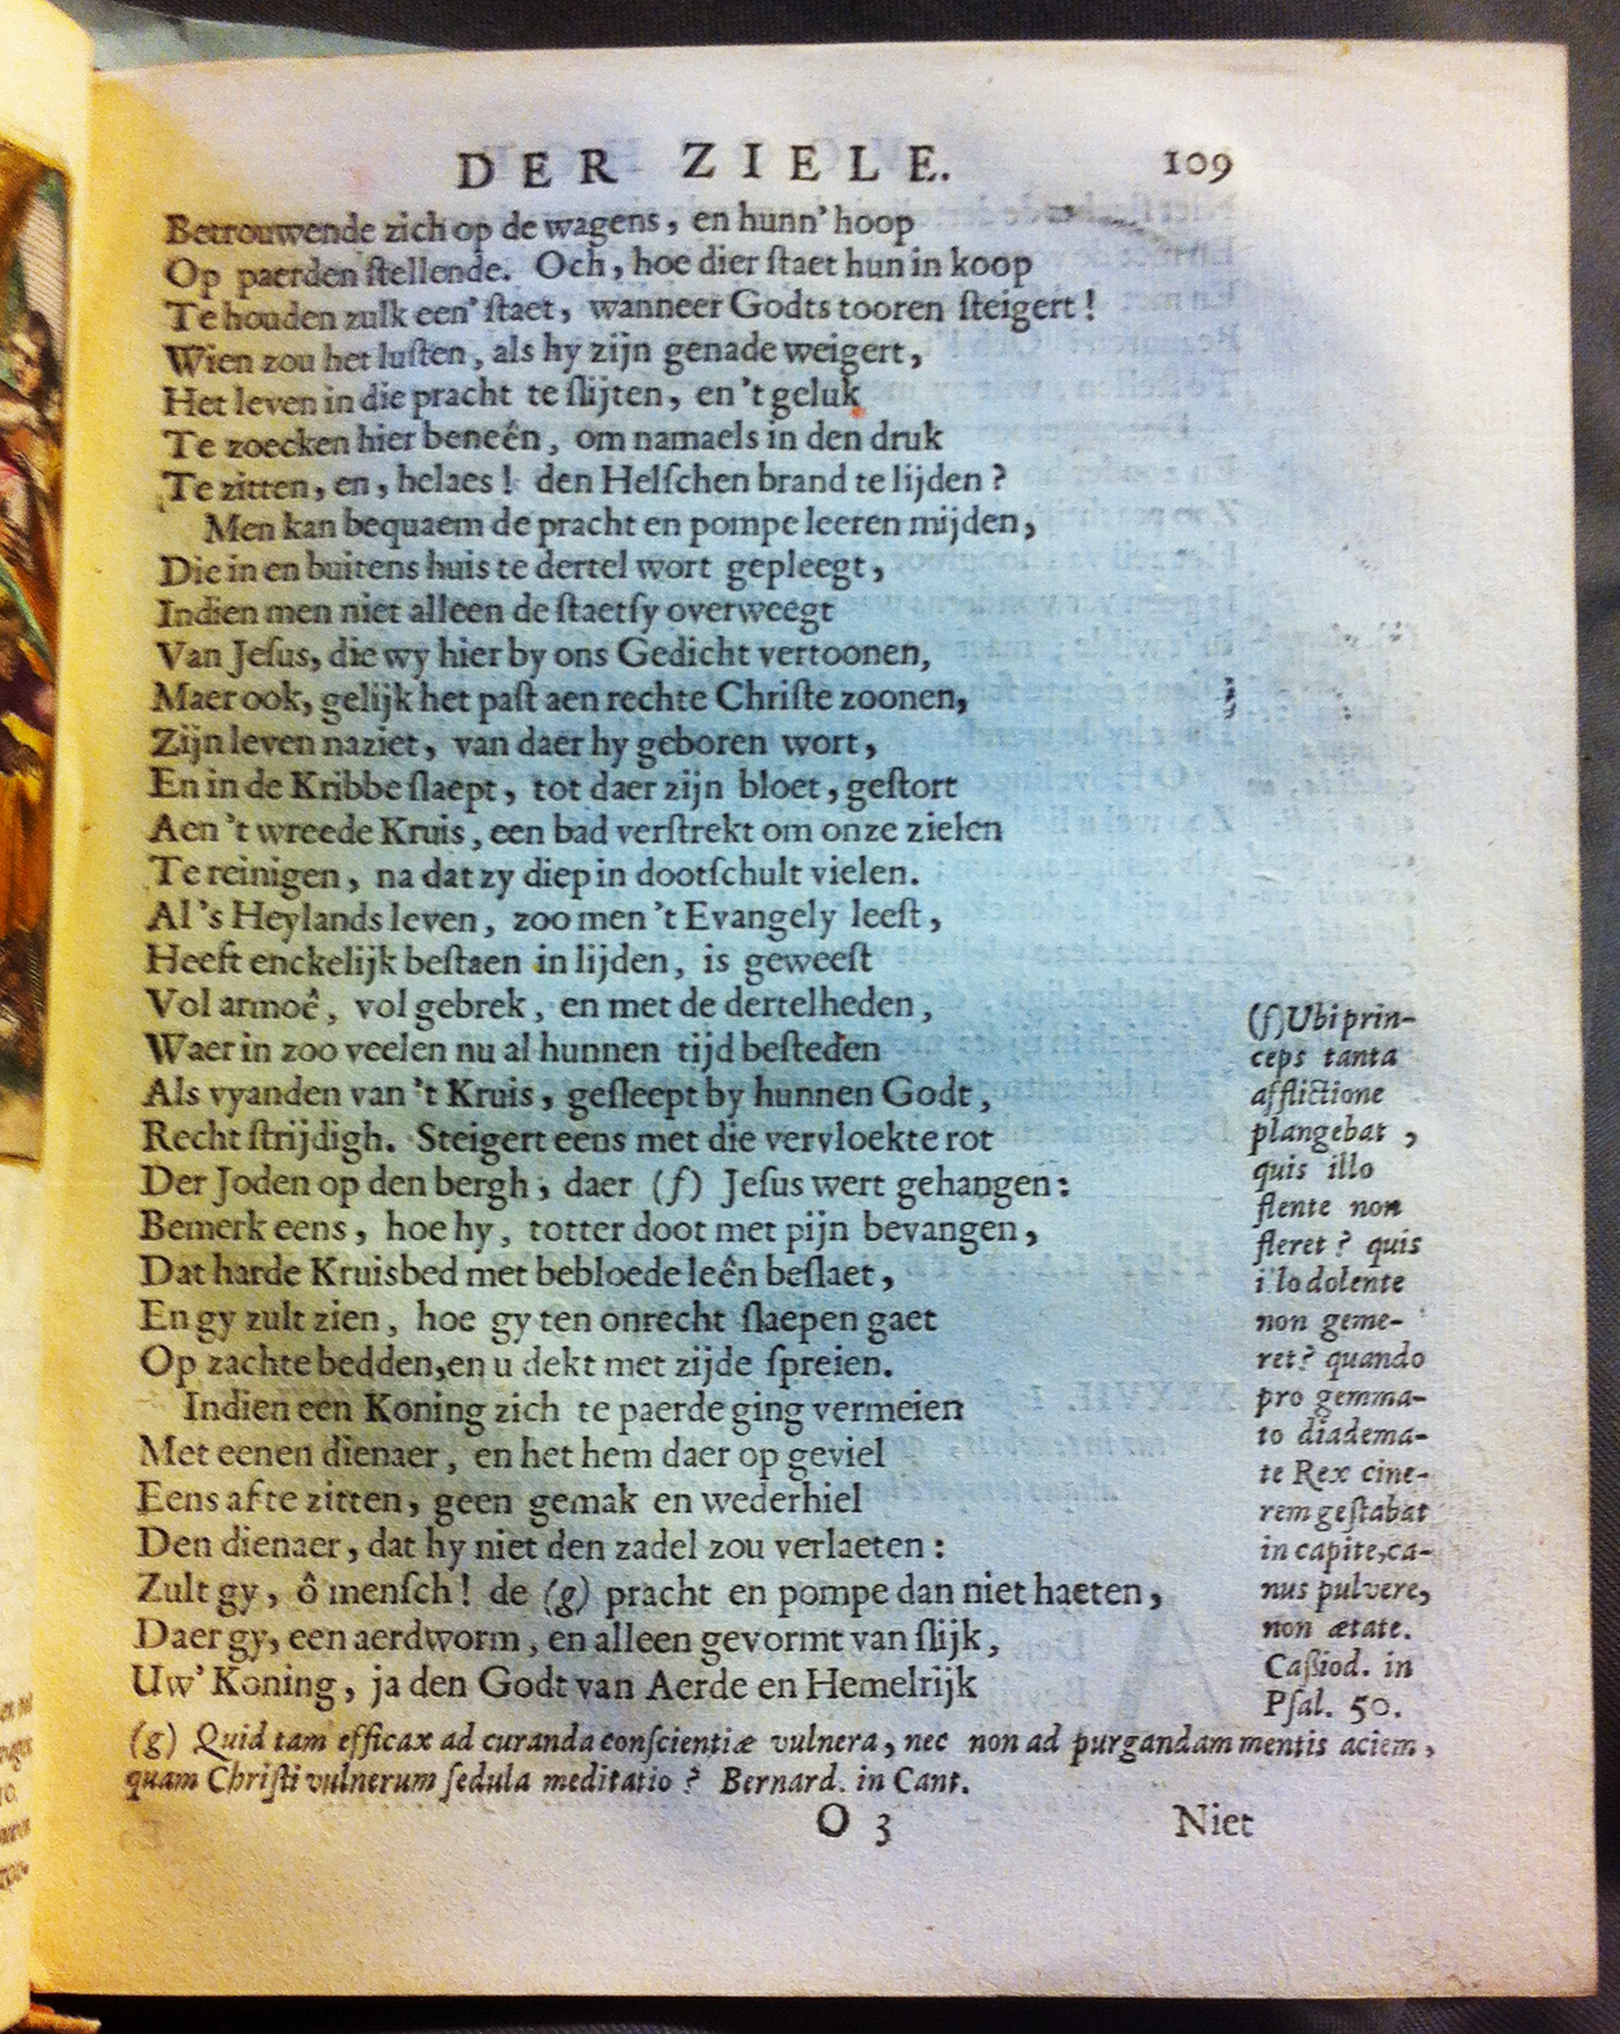 DER ZIELE. 109
Betrouwende zich op de wagens, en hunn' hoop
Op paerden ſtellende. Och, hoe dier ſtaet hun in koop
Te houden zulk een' ſtaet, wanneer Godts tooren ſteigert!
Wien zou het luſten, als hy zijn genade weigert,
Het leven in die pracht te ſlijten, en 't geluk
Te zoecken hier beneên, om namaels in den druk
Te zitten, en, helaes! den Helſchen brand te lijden?
Men kan bequaem de pracht en pompe leeren mijden,
Die in en buitens huis te dertel wort gepleegt,
Indien men niet alleen de ſtaetſy overweegt
Van Jeſus, die wy hier by ons Gedicht vertoonen,
Maer ook, gelijk het paſt aen rechte Chriſte zoonen,
Zijn leven naziet, van daer hy geboren wort,
En in de Kribbe ſlaept, tot daer zijn bloet, geſtort
Aen 't wreede Kruis, een bad verſtrekt om onze zielen
Te reinigen, na dat zy diep in dootſchult vielen.
Al 's Heylands leven, zoo men 't Evangely leeſt,
Heeft enckelijk beſtaen in lijden, is geweeſt
Vol armoê, vol gebrek, en met de dertelheden,
Waer in zoo veelen nu al hunnen tijd beſteden
Als vyanden van 't Kruis, geſleept by hunnen Godt,
Recht ſtrijdigh. Steigert eens met die vervloekte rot
Der Joden op den bergh, daer (f) Jeſus wert gehangen:
Bemerk eens, hoe hy, totter doot met pijn bevangen,
Dat harde Kruisbed met bebloede leên beſlaet,
En gy zult zien, hoe gy ten onrecht ſlaepen gaet
Op zachte bedden, en u dekt met zijde ſpreien.
Indien een Koning zich te paerde ging vermeien
Met eenen dienaer, en het hem daer op geviel
Eens af te zitten, geen gemak en wederhiel
Den dienaer, dat hy niet den zadel zou verlaeten:
Zult gy, ô menſch! de (g) pracht en pompe dan niet haeten,
Daer gy, een aerdworm, en alleen gevormt van ſlijk,
Uw' Koning, ja den Godt van Aerde en Hemelrijk
(f) Ubi prin-
ceps tanta
afflictione
plangebat,
quis illo
flente non
fleret? quis
illo dolente
non geme-
ret? quando
pro gemma-
to diadema-
te Rex cine-
rem geſtabat
in capite, ca-
nus pulvere,
non ætate.
Caßiod. in
Pſal. 50.
(g) Quid tam efficax ad curanda conſcientiæ vulnera, nec non ad purgandam mentis aciem,
quam Chriſti vulnerum ſedula meditatio? Bernard. in Cant.
O 3 Niet